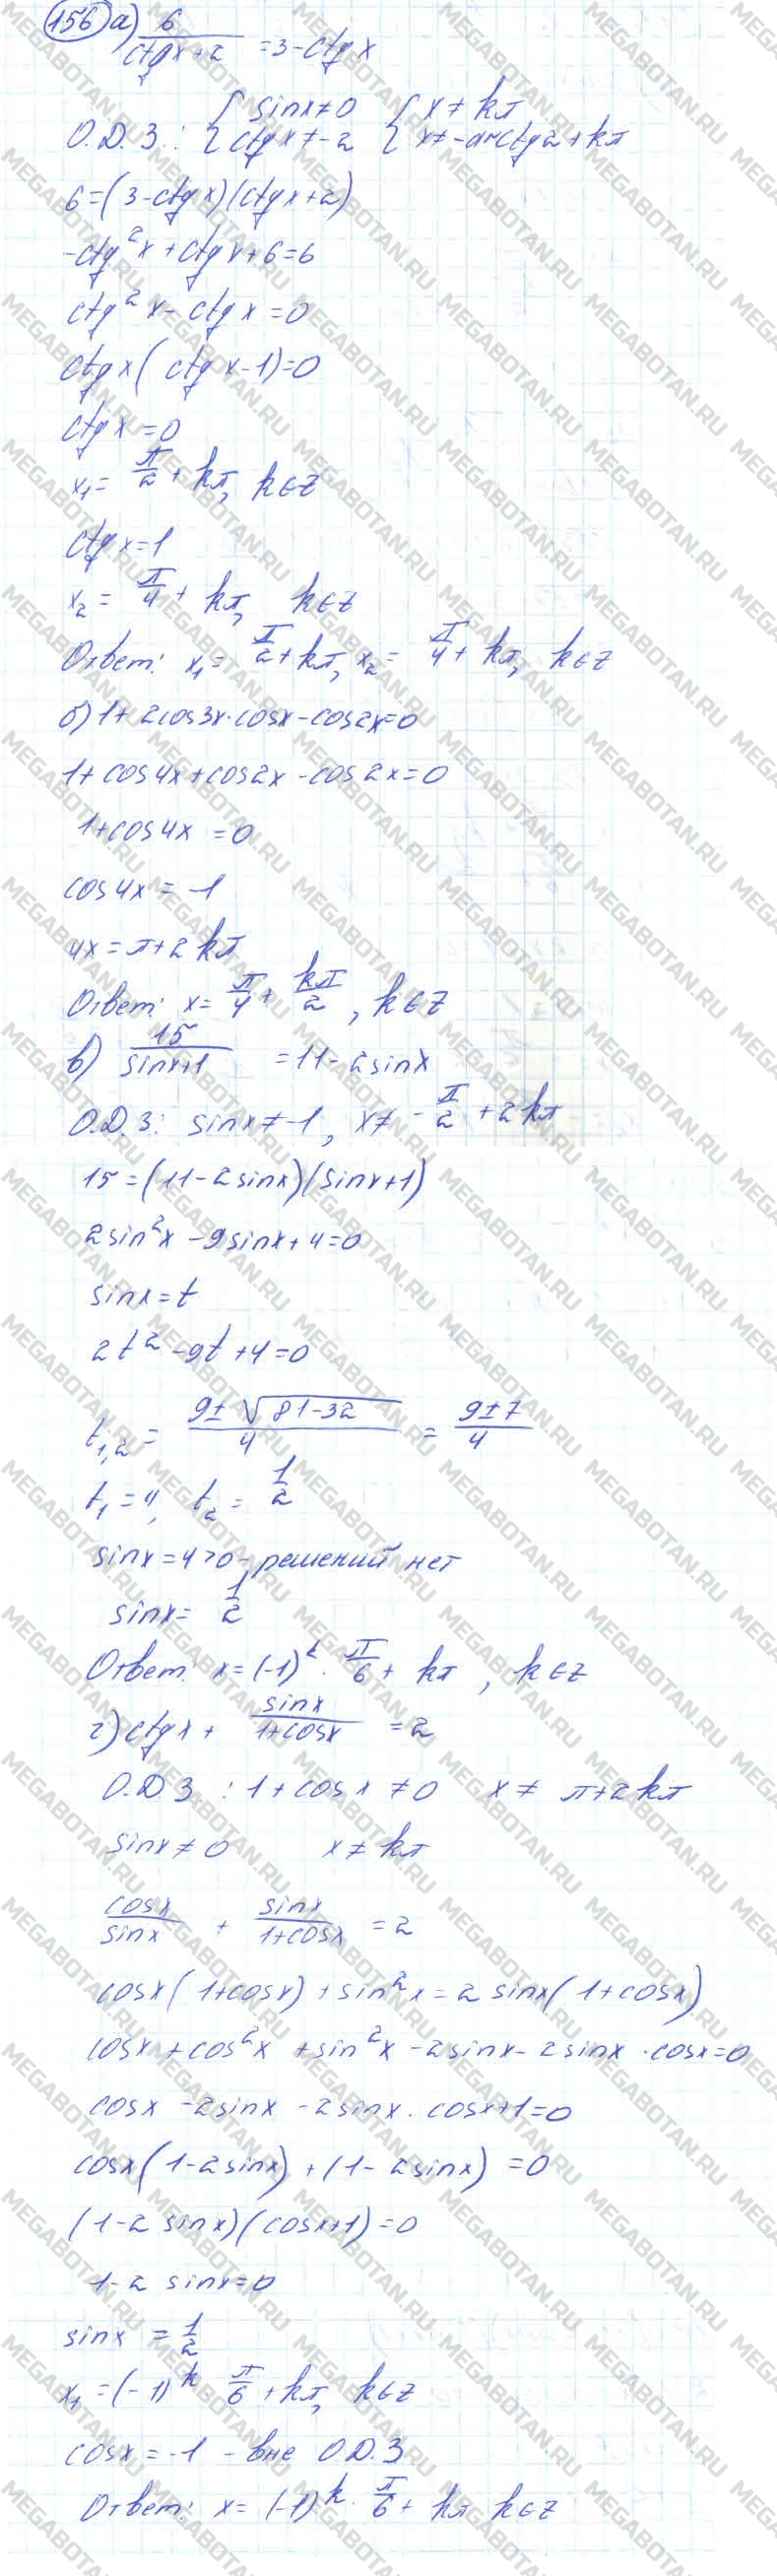 156 а) 6/(ctgx+2) = 3-ctgx
О.Д.З: { sinx≠0 { x≠kπ
ctgx≠-2 x≠-arcctg2+kπ
6=(3-ctgx)(ctgx+2)
-ctg²x+ctgx+6=6
ctg²x-ctgx=0
ctgx(ctgx-1)=0
ctgx=0
x₁=π/2+kπ, k∈z
ctgx=1
x₂=π/4+kπ, k∈z
Ответ: x₁=π/2+kπ, x₂=π/4+kπ, k∈z
б) 1+2cos3x·cosx-cos2x=0
1+cos4x+cos2x-cos2x=0
1+cos4x=0
cos4x=-1
4x=π+2kπ
Ответ: x=π/4+kπ/2, k∈z
в) 15/(sinx+1) =11-2sinx
О.Д.З: sinx≠-1, x≠-π/2+2kπ
15=(11-2sinx)(sinx+1)
2sin²x-9sinx+4=0
sinx=t
2t²-9t+4=0
t₁,₂=(9±√(81-32))/4=(9±7)/4
t₁=4, t₂=1/2
sinx=4>0-решений нет
sinx=1/2
Ответ: x=(-1)ᵏ·π/6+kπ, k∈z
г) ctgx+sinx/(1+cosx)=2
О.Д.З: 1+cosx≠0 x≠π+2kπ
sinx≠0 x≠kπ
cosx/sinx+sinx/(1+cosx)=2
cosx(1+cosx)+sin²x=2sinx(1+cosx)
cosx+cos²x+sin²x-2sinx-2sinx·cosx=0
cosx-2sinx-2sinx·cosx+1=0
cosx(1-2sinx)+(1-2sinx)=0
(1-2sinx)(cosx+1)=0
1-2sinx=0
sinx=1/2
x₁=(-1)ᵏ π/6+kπ, k∈z
cosx=-1 - вне О.Д.З
Ответ: x=(-1)ᵏ·π/6+kπ k∈z
MEGABOTAN.RU